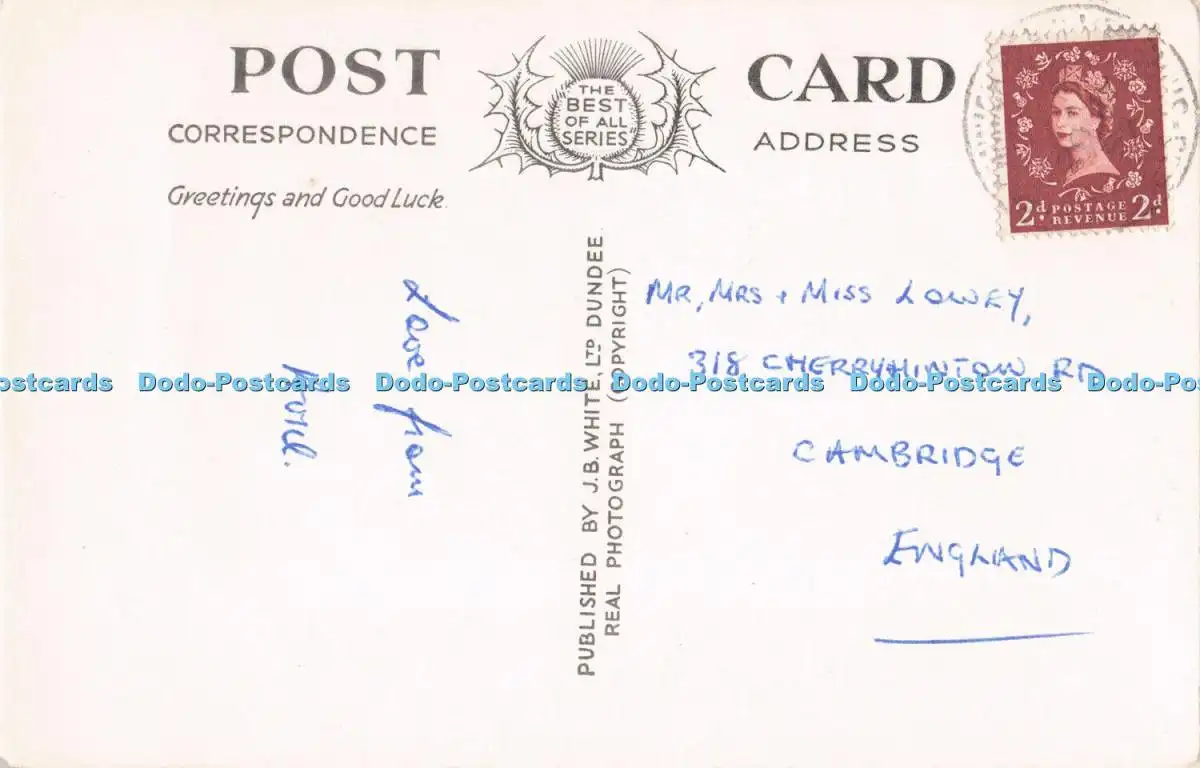 POST CARD
THE
"BEST
OF ALL
SERIES"
CORRESPONDENCE
ADDRESS
Greetings and Good Luck.
Love from
PUBLISHED BY J.B. WHITE, LTD DUNDEE
REAL PHOTOGRAPH (COPYRIGHT)
2d. POSTAGE REVENUE 2d.
MR, MRS + MISS LOWEY,
318 CHERRYHINTON RD
CAMBRIDGE
ENGLAND
Dodo-Postcards Dodo-Postcards Dodo-Postcards Dodo-Postcards Dodo-Postcards Dodo-Postcards